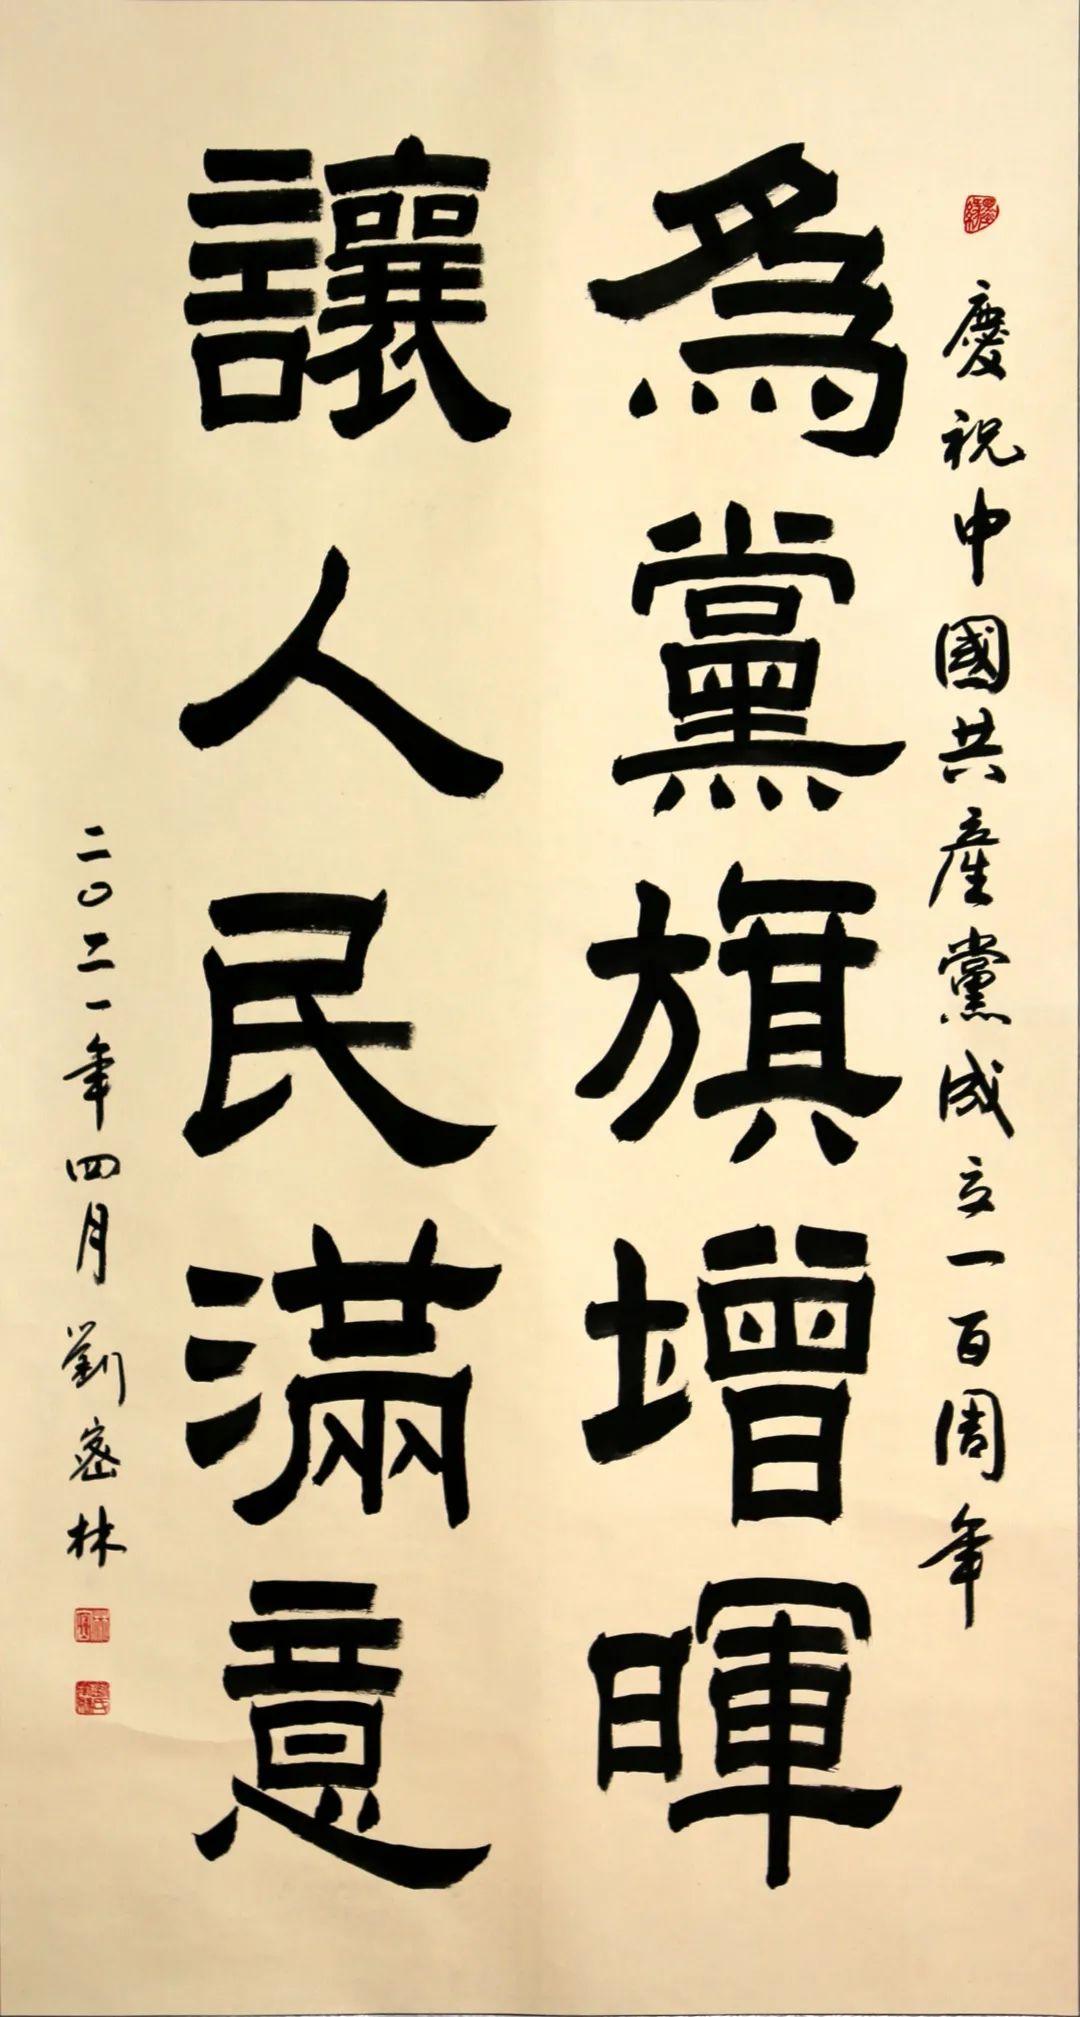 慶祝中國共產黨成立一百周年
為黨旗增暉
讓人民滿意
二〇二一年四月劉密林